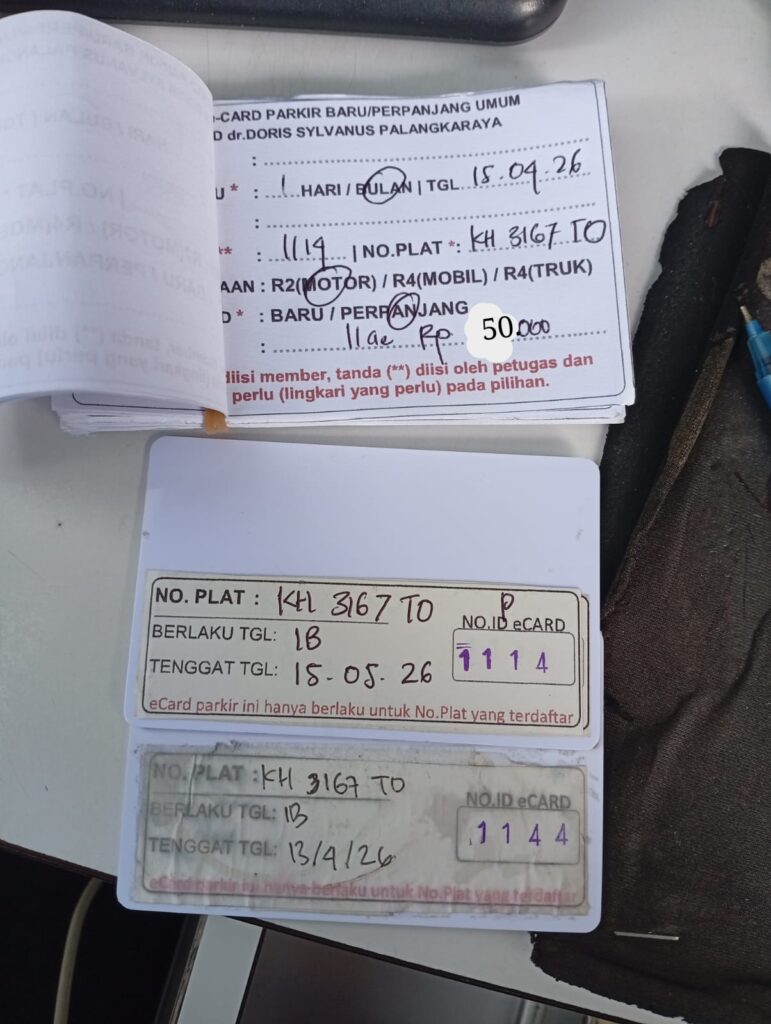 -CARD PARKIR BARU/PERPANJANG UMUM
D dr.DORIS SYLVANUS PALANGKARAYA
:
U * : 1 HARI / BULAN | TGL 15.04.26
:
** : 1114 | NO.PLAT *: KH 3167 TO
AAN : R2(MOTOR) / R4(MOBIL) / R4(TRUK)
D* : BARU / PERPANJANG
: Rp 50.000
diisi member, tanda (**) diisi oleh petugas dan
perlu (lingkari yang perlu) pada pilihan.
NO. PLAT : KH 3167 TO P
BERLAKU TGL: 1B NO.ID eCARD
TENGGAT TGL: 15-05-26 1114
eCard parkir ini hanya berlaku untuk No.Plat yang terdaftar
NO. PLAT : KH 3167 TO
BERLAKU TGL: 1B NO.ID eCARD
TENGGAT TGL: 13/4/26 1144
eCard parkir ini hanya berlaku untuk No.Plat yang terdaftar